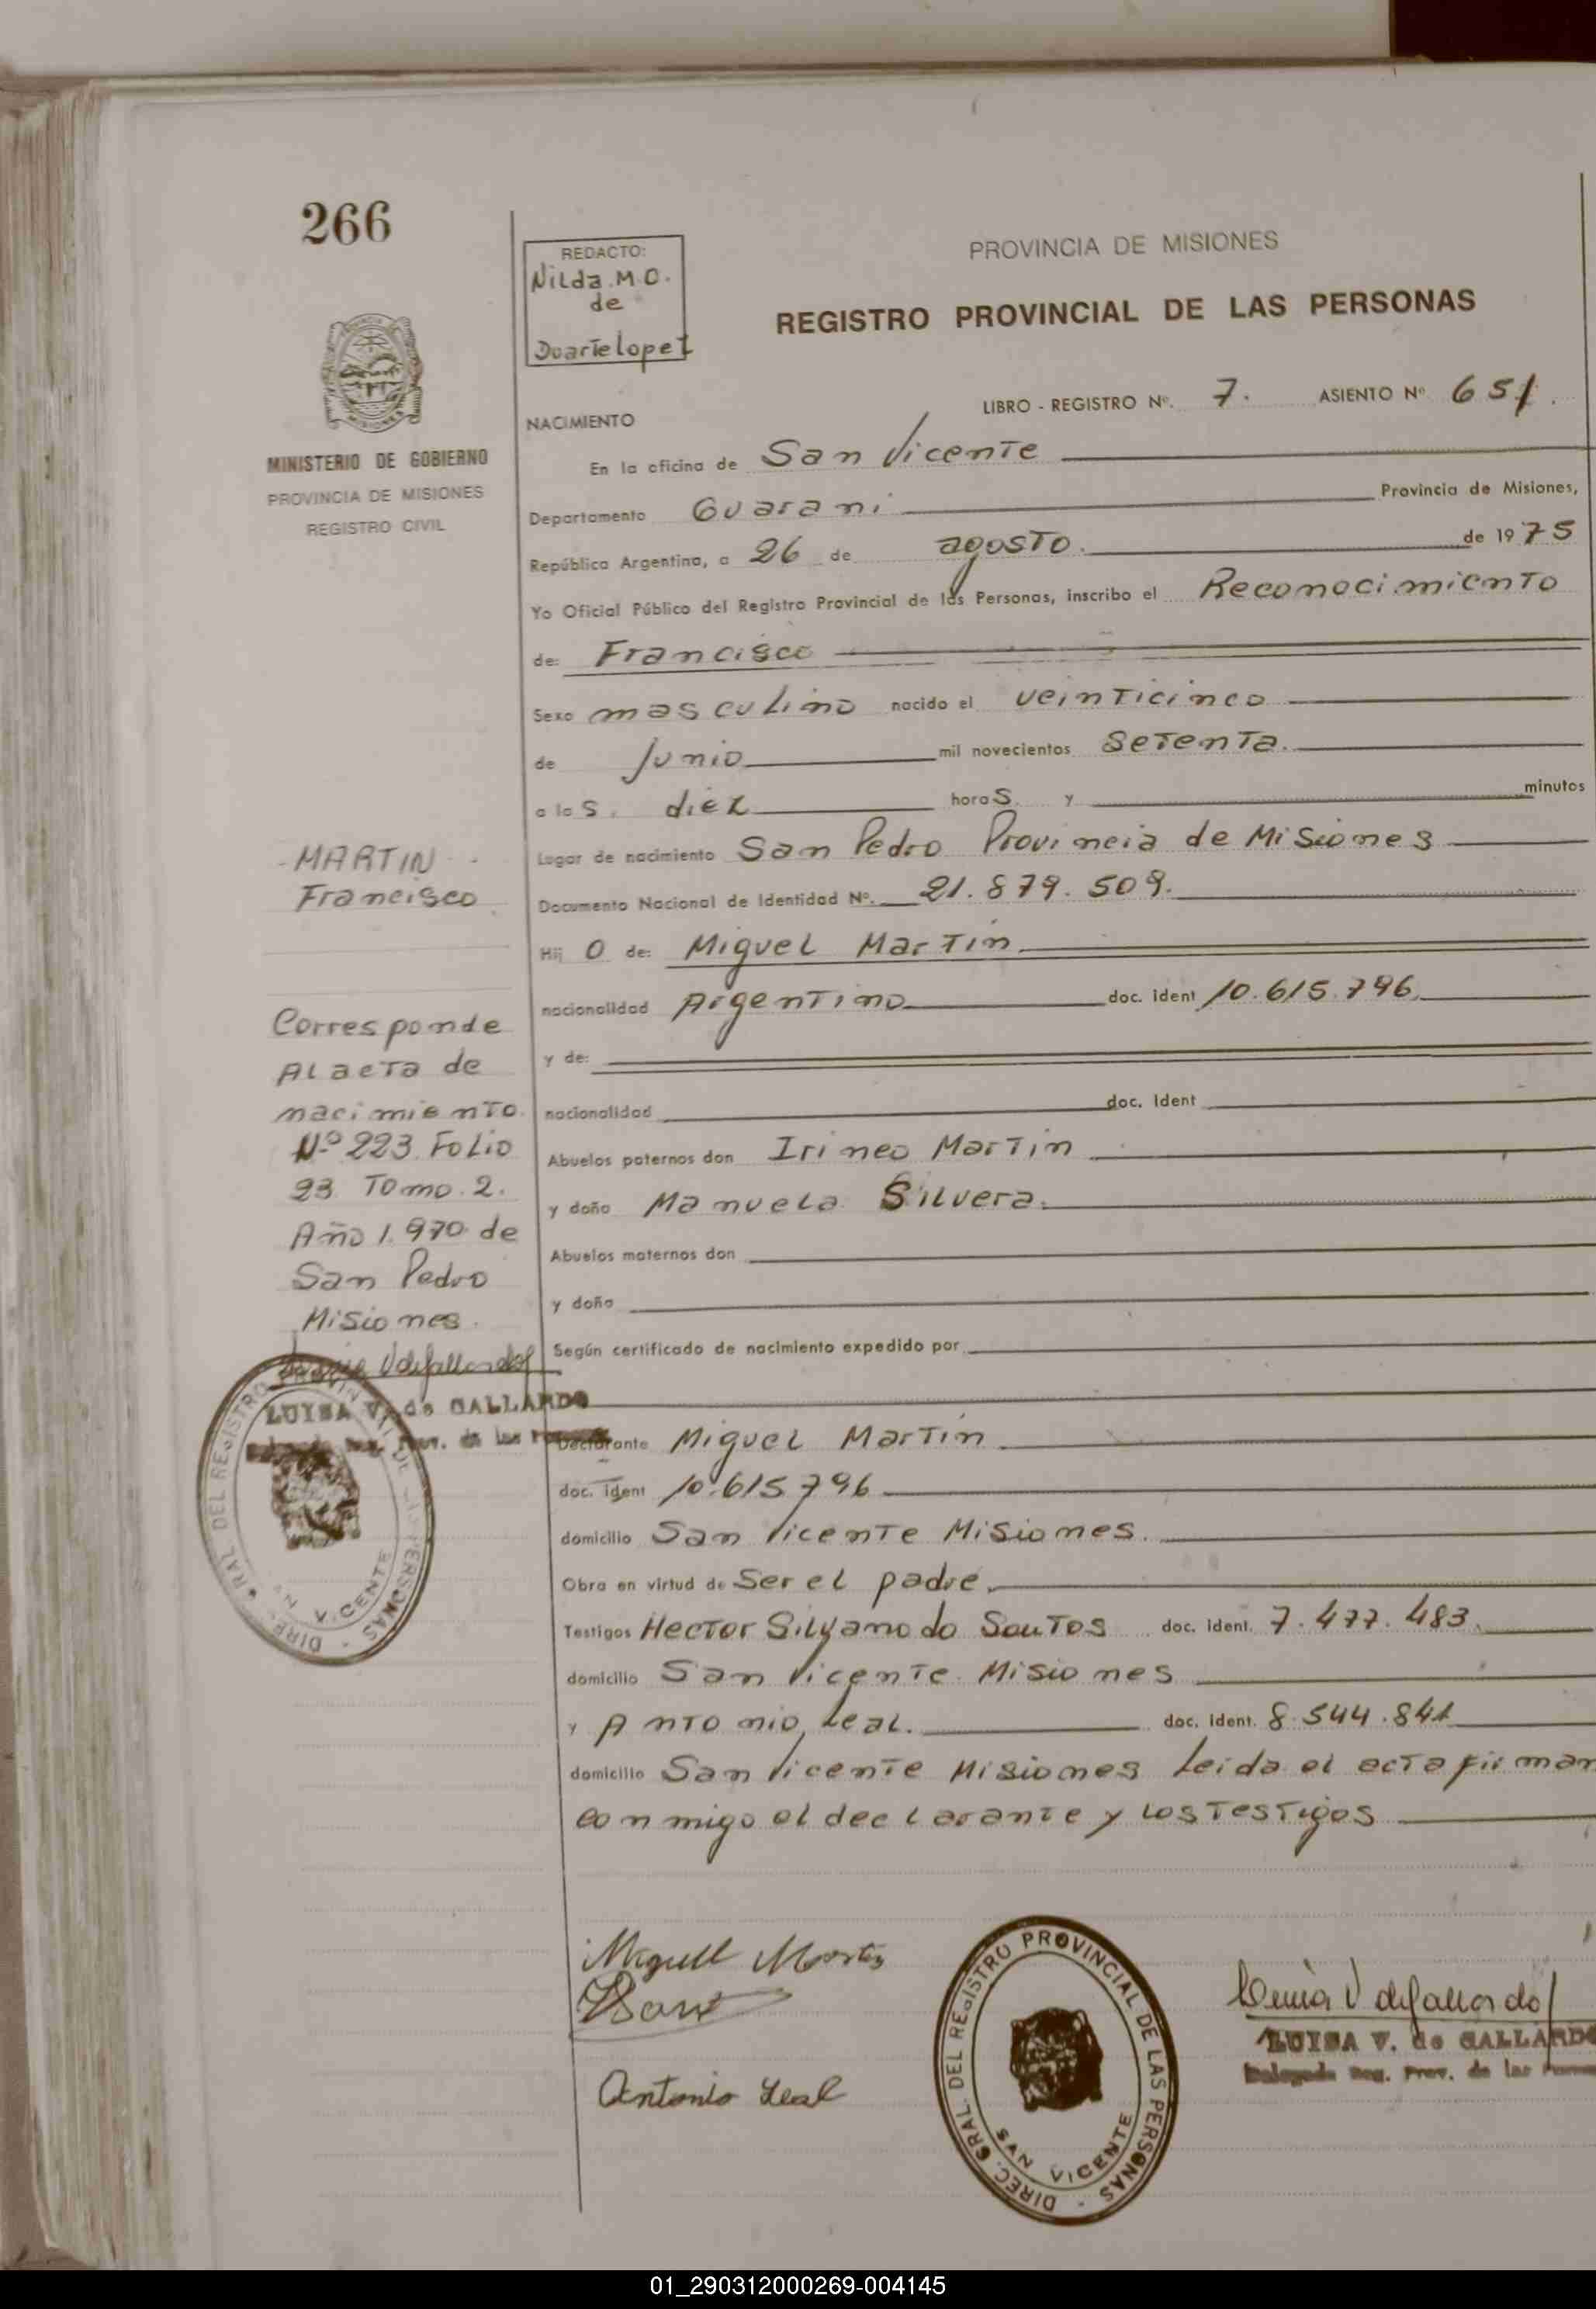 266
REDACTO:
Nilda. M. O.
de
Duartelopez
PROVINCIA DE MISIONES
REGISTRO PROVINCIAL DE LAS PERSONAS
MINISTERIO DE GOBIERNO
PROVINCIA DE MISIONES
REGISTRO CIVIL
LIBRO - REGISTRO Nº. 7. ASIENTO Nº 651.
NACIMIENTO
En la oficina de San Vicente
Departamento Guarani Provincia de Misiones,
República Argentina, a 26 de agosto. de 1975
Yo Oficial Público del Registro Provincial de las Personas, inscribo el Reconocimiento
de: Francisco
Sexo masculino nacido el veinticinco
de Junio mil novecientos setenta.
a las. diez horas y minutos
Lugar de nacimiento San Pedro Provincia de Misiones
Documento Nacional de Identidad Nº. 21.879.509.
Hijo de: Miguel Martin
nacionalidad Argentino doc. ident 10.615.796
y de:
nacionalidad doc. ident
Abuelos paternos don Irineo Martin
y doña Manuela Silvera.
Abuelos maternos don
y doña
Según certificado de nacimiento expedido por
Declarante Miguel Martin
doc. ident 10.615796
domicilio San Vicente Misiones.
Obra en virtud de Ser el padre.
Testigos Hector Silvano do Santos doc. ident. 7.477.483.
domicilio San Vicente Misiones
y Antonio Leal. doc. ident. 8.544.841
domicilio San Vicente Misiones Leida el acta firman
conmigo el declarante y los testigos
- MARTIN -
Francisco
Corresponde
AL acta de
nacimiento.
Nº 223 Folio
23 Tomo. 2.
Año 1.970 de
San Pedro
Misiones.
LUISA V. de GALLARDO
Delegada Reg. Prov. de las
DIREC. GRAL. DEL REGISTRO PROVINCIAL DE LAS PERSONAS - SAN VICENTE
Miguel Martin
Antonio Leal
DIREC. GRAL. DEL REGISTRO PROVINCIAL DE LAS PERSONAS - SAN VICENTE
LUISA V. de GALLARDO
Delegada Reg. Prov. de las
01_290312000269-004145